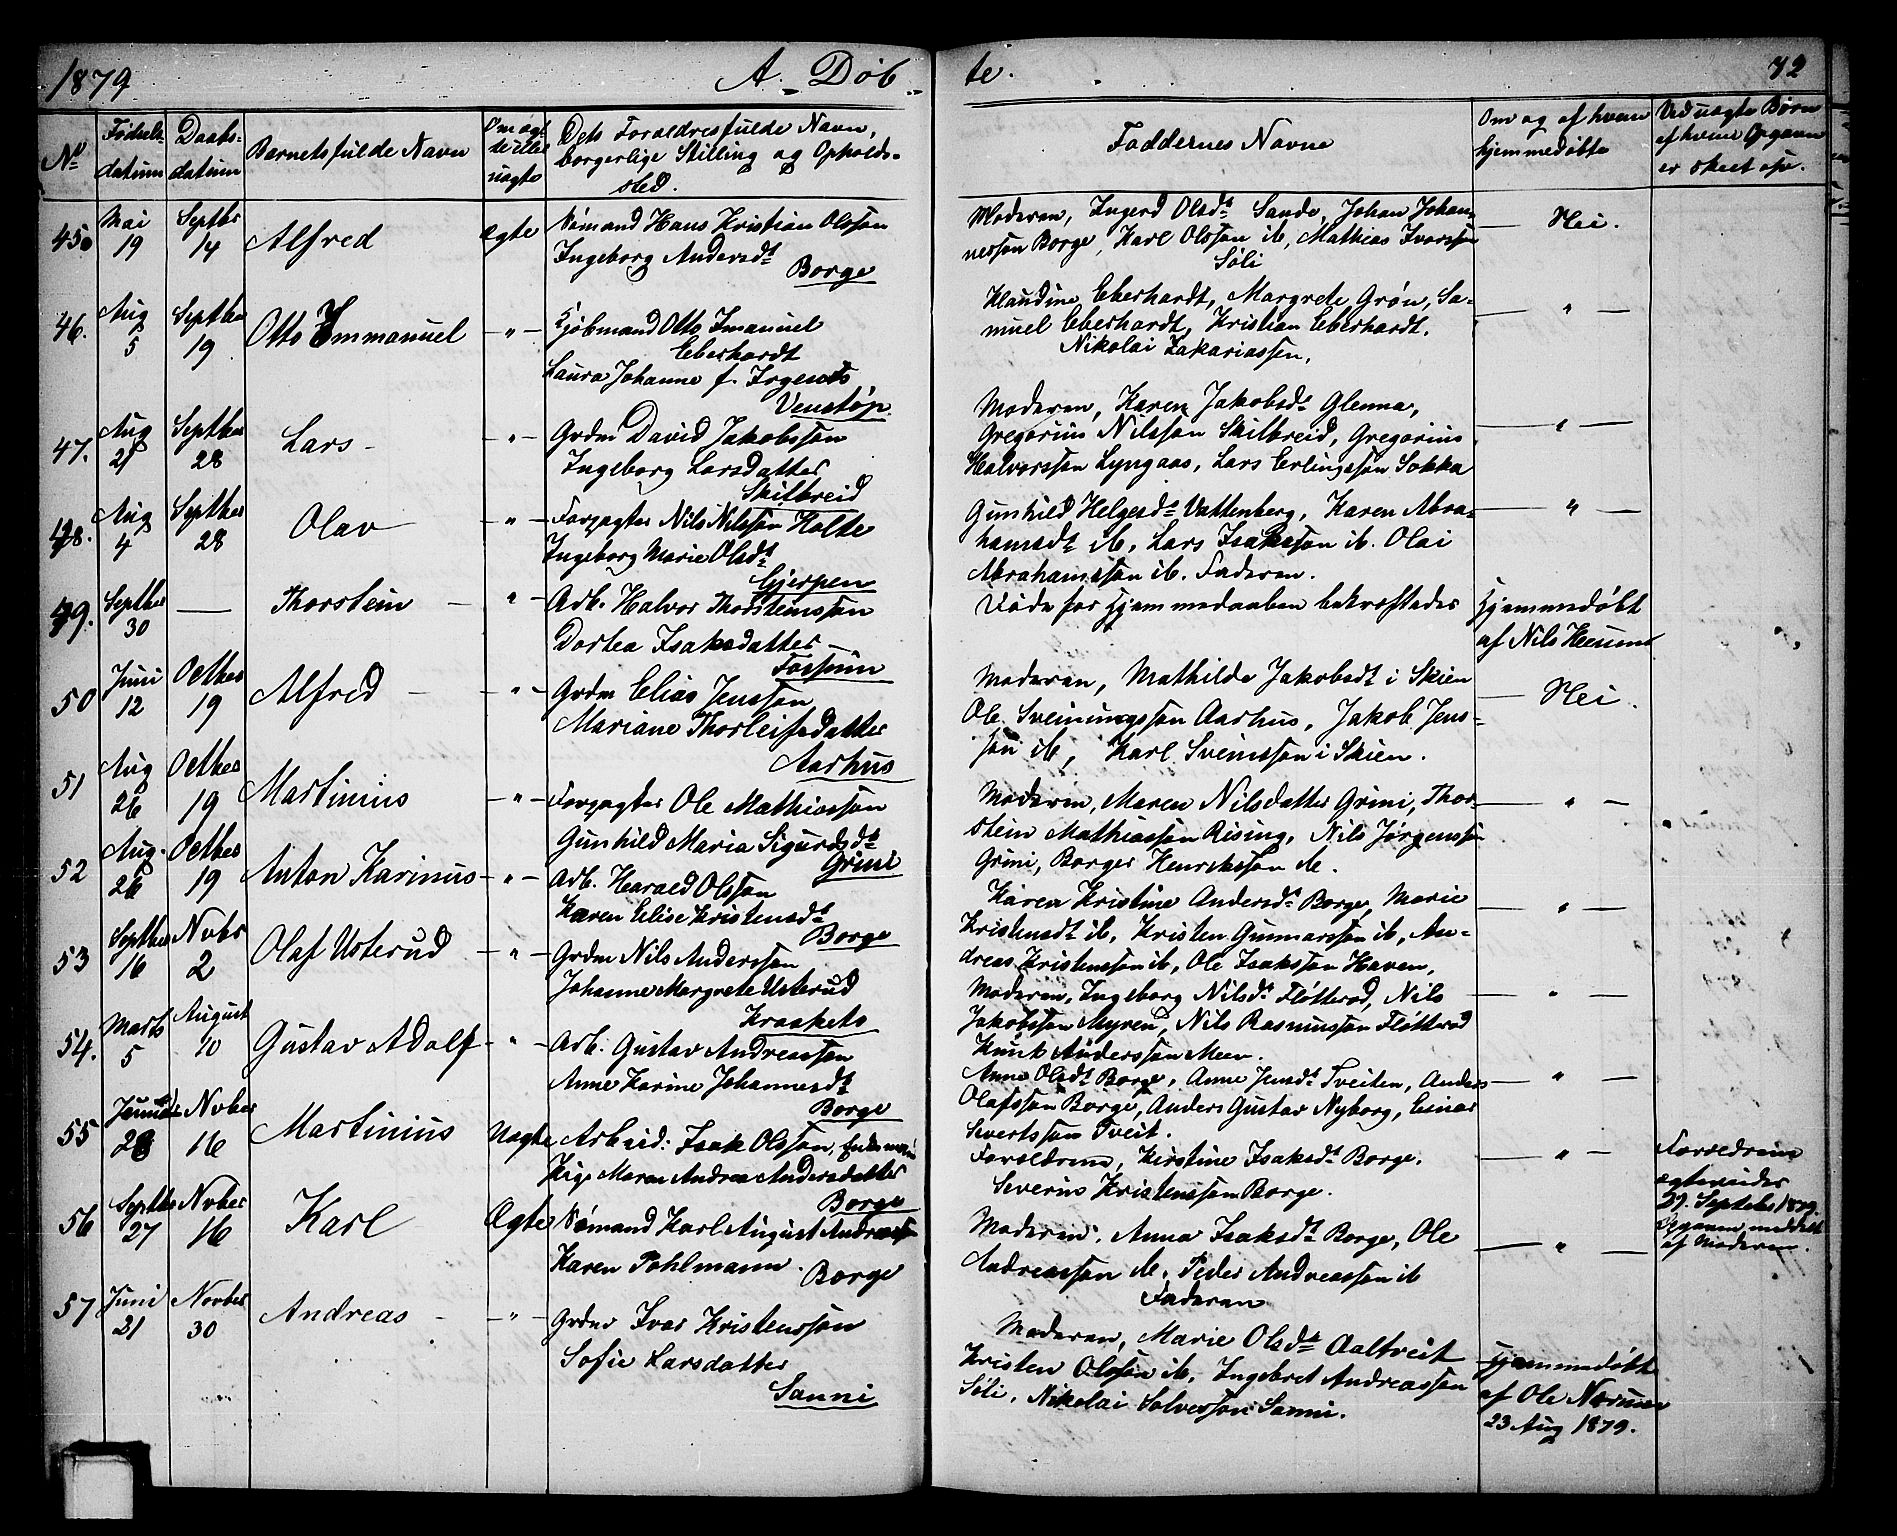 1879 A. Døb- te. 72
No
Fødsels-
datum
Daabs-
datum
Barnets fulde Navn
Om ægte
eller
uægte
Dets Forældres fulde Navn,
borgerlige Stilling og Opholds-
sted.
Faddernes Navne
Om og af hvem
hjemmedøbte
Ved uægte Børn
af hvem Opgaven
er skeet op.
45. Mai 19 Septbr 14 Alfred ægte
Sømand Hans Kristian Olsson
Ingeborg Andersdt
Borge
Moderen, Ingerd Olsdt Sande, Johan Johan-
nesson Borge, Karl Olsson ib, Mathias Ivarsson
Søli
— Nei.
46. Aug 5 Septber 19 Otto Emmanuel — " —
Kjøbmand Otto Imanuel
Eberhardt
Laura Johanne f.
Venstøp
Klaudine Eberhardt, Margrete Grøn, Sa-
muel Eberhardt, Kristian Eberhardt.
Nikolai Zakariassen.
— " —
47. Aug 21 Septber 28 Lars — " —
Grdm David Jakobsson
Ingeborg Larsdatter
Skilbreid
Moderen, Karen Jakobsdt Glenna,
Gregorius Nilsson Skilbreid, Gregorius
Halvorsson Lyngaas, Lars Erlingsson Sokka
— " —
48. Aug 4 Septber 28 Olav — " —
Forpagter Nils Nilsson Holte
Ingeborg Marie Olsdt
Gjerpen
Gunhild Helgesdt Vattenberg, Karen Abra-
hamsdt ib, Lars Isaksson ib. Olai
Abrahamsson ib. Faderen.
— " —
49. Septber 30 — Thorstein — " —
Arb. Halvor Thorsteinsson
Dortea Isaksdatter
Fossum
Døde før Hjemmedaaben bekræftedes
Hjemmedøbt
af Nils Heisumb
50 Juni 12 Octber 19 Alfred — " —
Grdm Elias Jensson
Mariane Thorleifsdatter
Aarhus
Moderen, Mathilde Jakobsdt i Skien
Ole Sveiningsson Aarhus, Jakob Jens-
son ib, Karl Sveinsson i Skien.
— Nei.
51 Aug 26 Octber 19 Martinius — " —
Forpagter Ole Mathiasson
Gunhild Maria Sigurdsdt
Grini
Moderen, Maren Nilsdatter Grini, Thor-
stein Mathiasson Rising, Nils Jørgensson
Grini, Borger Henriksson ib.
— " —
52 Aug. 26 Octber 19 Anton Karinus — " —
Arb. Harald Olsson
Karen Elise Kristensdt
Borge
Karen Kristine Andersdt Borge, Marie
Kristensdt ib, Kristen Gunnarsson ib, An-
dreas Kristensson ib, Ole Isaksson Haven,
— " —
53 Septber 16 Nvbr 2 Olaf Usterud — " —
Grdm Nils Andersson
Johanne Margrete Usterud
Kraaketo
Moderen, Ingeborg Nilsdt Fløtterød, Nils
Jakobsson Myren, Nils Rasmusson Fløtterød
Knut Andersson Meen.
— " —
54. Marts 5 August 10 Gustav Adolf — " —
Arb. Gustav Andreasson
Anne Karine Johannesdt
Borge
Anne Olsdt Borge, Anne Jensdt Tveiten, Anders
Olafsson Borge, Anders Gustav Nyborg, Einar
Sivertsson Tveit.
— " —
55 26 Nvber 16 Martinius Uægte
Arbeid: Isak Olsson,
Pige Maren Andrea Andersdatter
Borge
Forældrene, Kirstine Isaksdt Borge.
Severius Kristensson Borge.
— " —
Forældrene
ægteviedes
27. Septeber 1879.
Opgaven meddelt
af Moderen.
56 Septbr 27 Nvber 16 Karl Ægte
Sømand Karl August Andreass
Karen Pohlmann.
Borge
Moderen, Anna Isaksdt Borge, Ole
Andreasson ib, Peder Andreasson ib
Faderen
— " —
57 Juni 21 Novber 30 Andreas — " —
Grdm Ivar Kristensson
Sofie Larsdatter
Sanni
Moderen, Marie Olsdt Aaltveit
Kristen Olsson ib, Ingebret Andreasson
Søli, Nikolai Solvesson Sanni.
Hjemmedøbt
af Ole Nærum
23 Aug 1879.